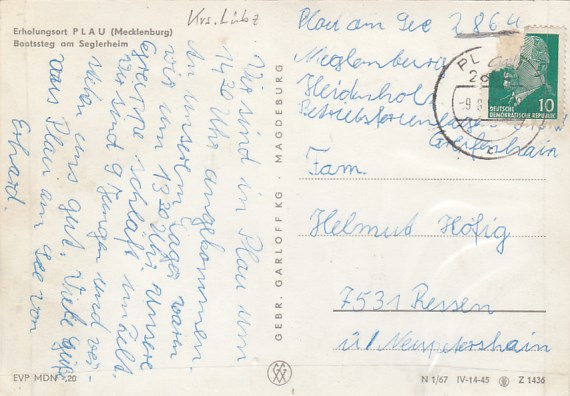 Krs. Lübz
Erholungsort PLAU (Mecklenburg)
Bootssteg am Seglerheim
Wir sind in Plau um
14.30 Uhr angekommen.
In unserem Lager waren
wir um 13.30 Uhr. Unsere
Gruppe schläft im Zelt.
Wir sind 9 Jungen und ver-
stehen uns gut. Viele Grüße
aus Plau am See von
Erhard.
EVP MDN -,20
GEBR. GARLOFF KG · MAGDEBURG
Plau am See 2864
Meglenburg
Heidenholz
Betriebsferienlager
Fam.
Helmut Höfig
7531 Ressen
ü/ Neupetershain
PLAU
10
DEUTSCHE
DEMOKRATISCHE REPUBLIK
N 1/67 IV-14-45 Z 1436